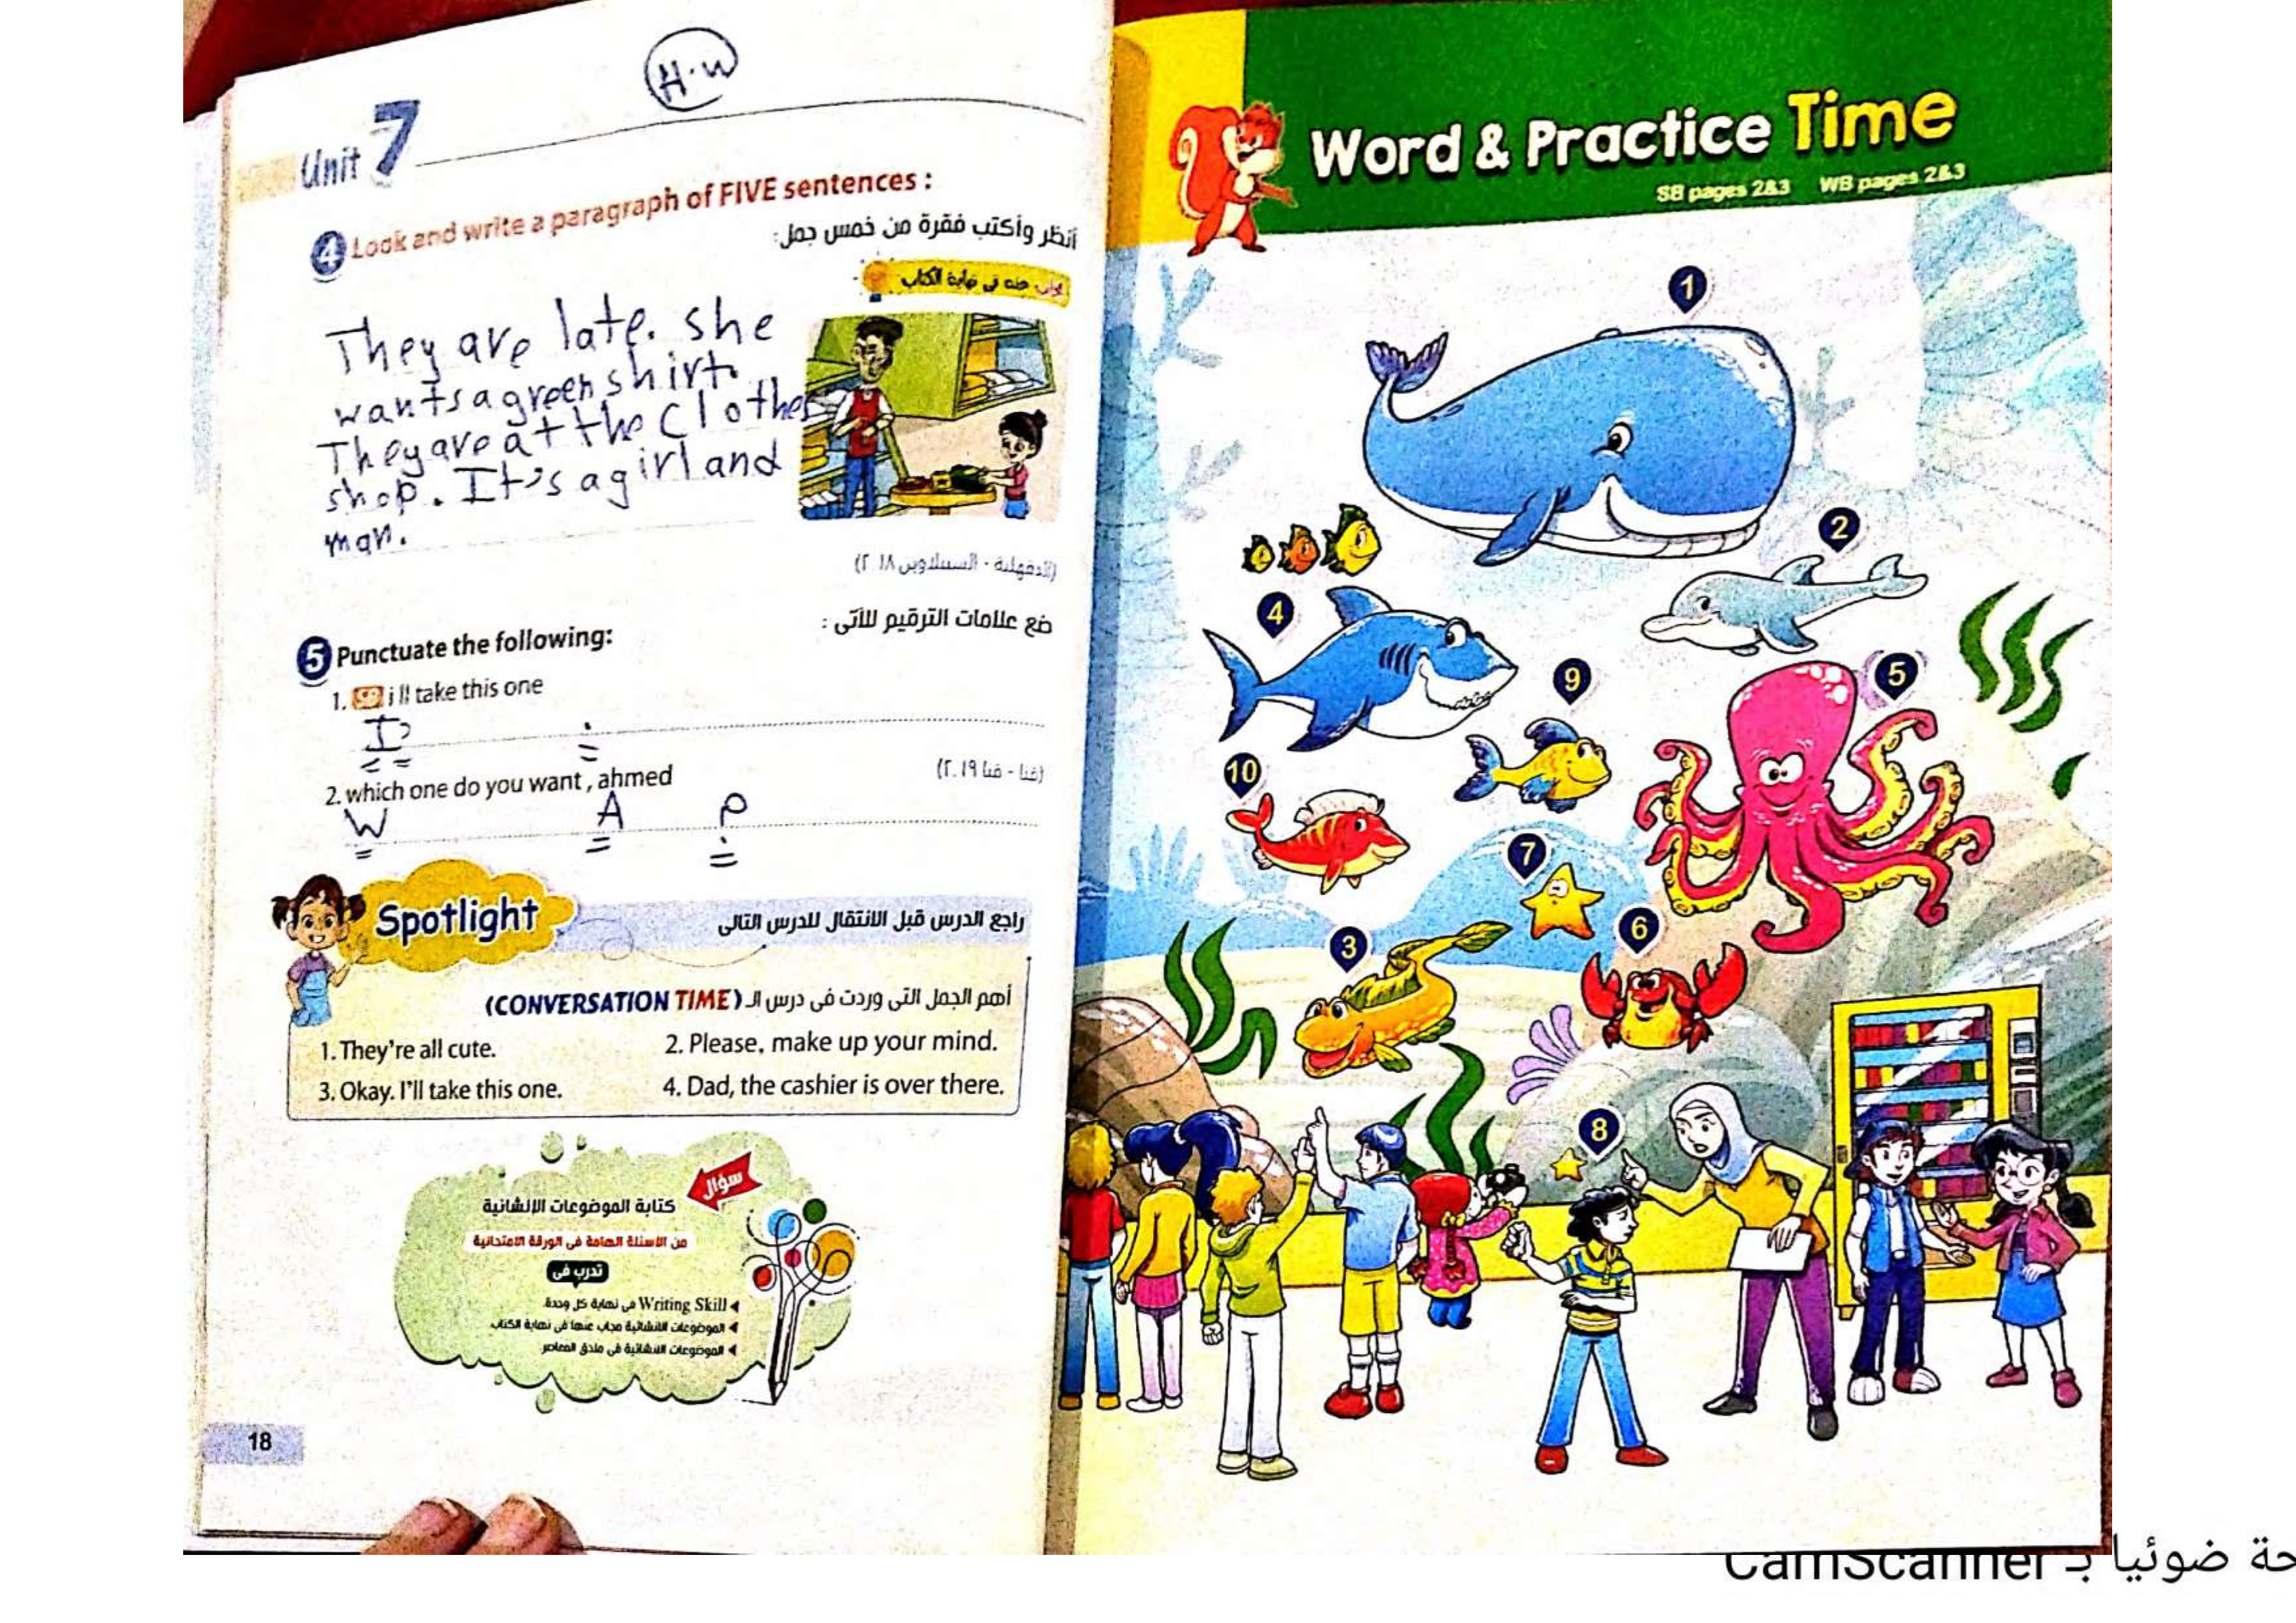 H.W
Unit 7
4 Look and write a paragraph of FIVE sentences :
أنظر وأكتب فقرة من خمس جمل:
في نهاية الكتاب
They are late. she
wants a green shirt.
They are at the clothes
shop. It's a girl and
man.
(الدقهلية - السنبلاوين ٢٠١٨)
5 Punctuate the following:
ضع علامات الترقيم للآتى :
1. i ll take this one
I' .
(قنا - قنا ٢٠١٩)
2. which one do you want , ahmed
W A ?
Spotlight
راجع الدرس قبل الانتقال للدرس التالى
أهم الجمل التى وردت فى درس الـ (CONVERSATION TIME)
1. They're all cute.
2. Please, make up your mind.
3. Okay. I'll take this one.
4. Dad, the cashier is over there.
سؤال
كتابة الموضوعات الإنشائية
من الأسئلة الهامة فى الورقة الامتحانية
تدرب فى
Writing Skill فى نهاية كل وحدة
الموضوعات الانشائية مجاب عنها فى نهاية الكتاب
الموضوعات الانشائية فى ملحق المعاصر
18
Word & Practice Time
SB pages 2&3 WB pages 2&3
1
2
4
9
5
10
7
6
3
8
ضوئيا بـ CamScanner